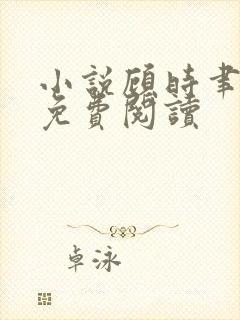 小説顧時聿
免費閱讀
卓泳